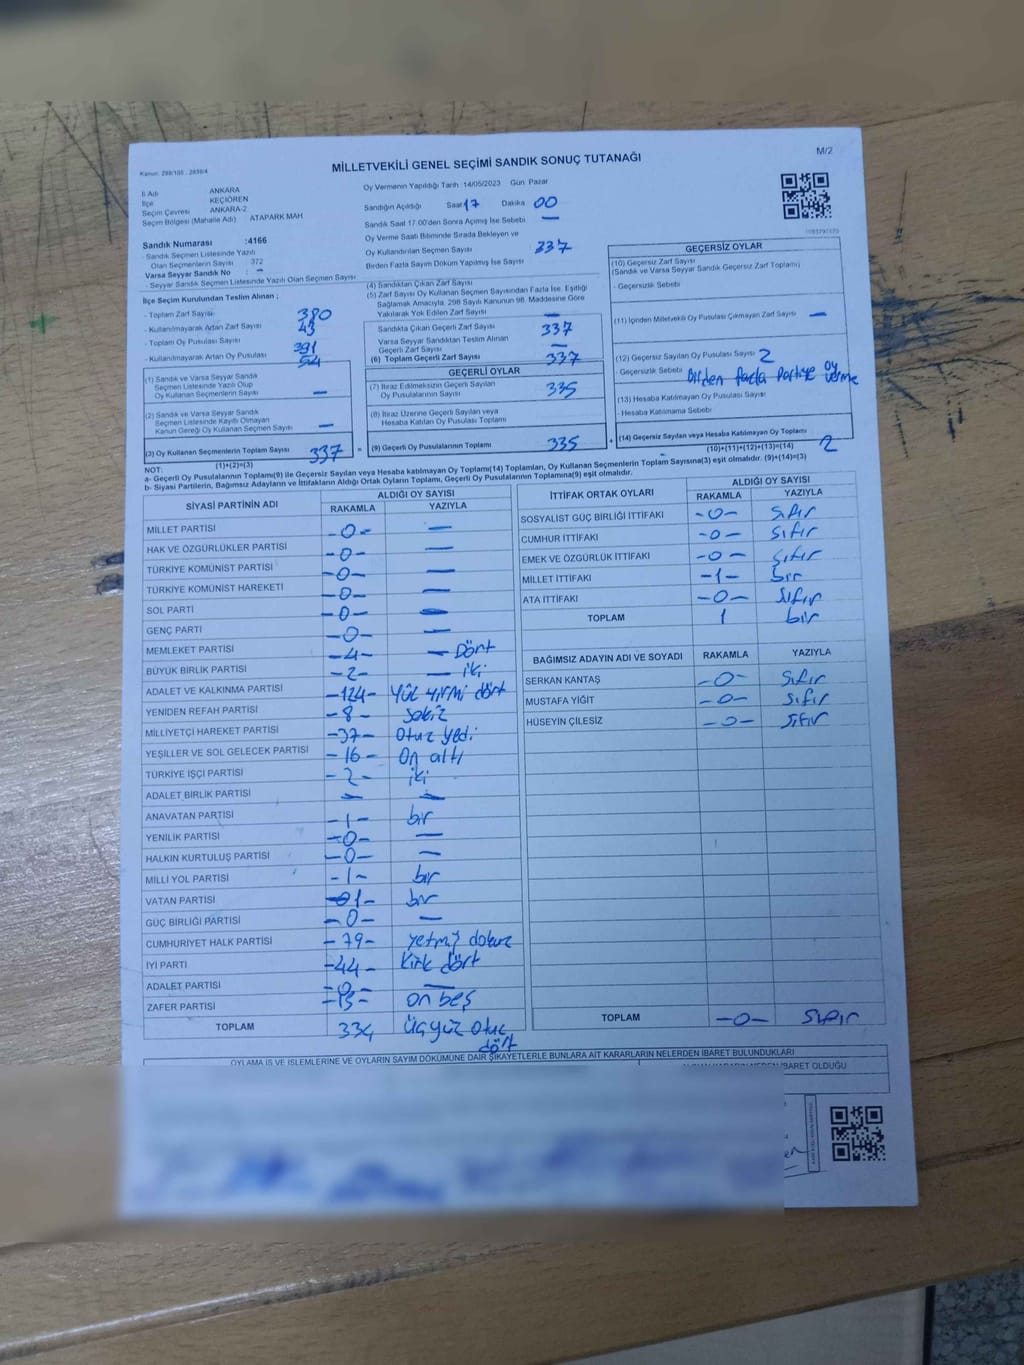 Kanun: 298/105 , 2839/4
MİLLETVEKİLİ GENEL SEÇİMİ SANDIK SONUÇ TUTANAĞI
M/2
İl Adı ANKARA
İlçe KEÇİÖREN
Seçim Çevresi ANKARA-2
Seçim Bölgesi (Mahalle Adı) ATAPARK MAH
Sandık Numarası :4166
- Sandık Seçmen Listesinde Yazılı
Olan Seçmenlerin Sayısı 372
Varsa Seyyar Sandık No : -
- Seyyar Sandık Seçmen Listesinde Yazılı Olan Seçmen Sayısı
İlçe Seçim Kurulundan Teslim Alınan ;
- Toplam Zarf Sayısı 380
- Kullanılmayarak Artan Zarf Sayısı 43
- Toplam Oy Pusulası Sayısı 391
- Kullanılmayarak Artan Oy Pusulası 54
(1) Sandık ve Varsa Seyyar Sandık
Seçmen Listesinde Yazılı Olup
Oy Kullanan Seçmenlerin Sayısı —
(2) Sandık ve Varsa Seyyar Sandık
Seçmen Listesinde Kayıtlı Olmayan
Kanun Gereği Oy Kullanan Seçmen Sayısı —
(3) Oy Kullanan Seçmenlerin Toplam Sayısı 337
(1)+(2)=(3)
Oy Vermenin Yapıldığı Tarih :14/05/2023 Gün Pazar
Sandığın Açıldığı Saat 17 Dakika 00
Sandık Saat 17:00'den Sonra Açılmış İse Sebebi —
Oy Verme Saati Bitiminde Sırada Bekleyen ve
Oy Kullandırılan Seçmen Sayısı 337
Birden Fazla Sayım Döküm Yapılmış İse Sayısı
(4) Sandıktan Çıkan Zarf Sayısı
(5) Zarf Sayısı Oy Kullanan Seçmen Sayısından Fazla İse, Eşitliği
Sağlamak Amacıyla, 298 Sayılı Kanunun 98. Maddesine Göre
Yakılarak Yok Edilen Zarf Sayısı
Sandıkta Çıkan Geçerli Zarf Sayısı 337
Varsa Seyyar Sandıktan Teslim Alınan
Geçerli Zarf Sayısı —
(6) Toplam Geçerli Zarf Sayısı 337
GEÇERLİ OYLAR
(7) İtiraz Edilmeksizin Geçerli Sayılan
Oy Pusulalarının Toplamı 335
(8) İtiraz Üzerine Geçerli Sayılan veya
Hesaba Katılan Oy Pusulaları Toplamı
= (9) Geçerli Oy Pusulalarının Toplamı 335 +
GEÇERSİZ OYLAR
(10) Geçersiz Zarf Sayısı
(Sandık ve Varsa Seyyar Sandık Geçersiz Zarf Toplamı)
- Geçersizlik Sebebi
(11) İçinden Milletvekili Oy Pusulası Çıkmayan Zarf Sayısı —
(12) Geçersiz Sayılan Oy Pusulası Sayısı 2
- Geçersizlik Sebebi Birden fazla Partiye oy verme
(13) Hesaba Katılmayan Oy Pusulası Sayısı
- Hesaba Katılmama Sebebi
(14) Geçersiz Sayılan veya Hesaba Katılmayan Oy Toplamı 2
(10)+(11)+(12)+(13)=(14)
NOT:
a- Geçerli Oy Pusulalarının Toplamı(9) ile Geçersiz Sayılan veya Hesaba katılmayan Oy Toplamı(14) Toplamları, Oy Kullanan Seçmenlerin Toplam Sayısına(3) eşit olmalıdır. (9)+(14)=(3)
b- Siyasi Partilerin, Bağımsız Adayların ve İttifakların Aldığı Ortak Oyların Toplamı, Geçerli Oy Pusulalarının Toplamına(9) eşit olmalıdır.
SİYASİ PARTİNİN ADI ALDIĞI OY SAYISI
RAKAMLA YAZIYLA
MİLLET PARTİSİ -0- —
HAK VE ÖZGÜRLÜKLER PARTİSİ -0- —
TÜRKİYE KOMÜNİST PARTİSİ -0- —
TÜRKİYE KOMÜNİST HAREKETİ -0- —
SOL PARTİ -0- —
GENÇ PARTİ -0- —
MEMLEKET PARTİSİ -4- — Dört
BÜYÜK BİRLİK PARTİSİ -2- — iki
ADALET VE KALKINMA PARTİSİ -124- Yüz yirmi dört
YENİDEN REFAH PARTİSİ -8- sekiz
MİLLİYETÇİ HAREKET PARTİSİ -37- Otuz yedi
YEŞİLLER VE SOL GELECEK PARTİSİ -16- On altı
TÜRKİYE İŞÇİ PARTİSİ -2- iki
ADALET BİRLİK PARTİSİ — —
ANAVATAN PARTİSİ -1- bir
YENİLİK PARTİSİ -0- —
HALKIN KURTULUŞ PARTİSİ -0- —
MİLLİ YOL PARTİSİ -1- bir
VATAN PARTİSİ 1- bir
GÜÇ BİRLİĞİ PARTİSİ -0- —
CUMHURİYET HALK PARTİSİ -79- yetmiş dokuz
İYİ PARTİ -44- kırk dört
ADALET PARTİSİ -0- —
ZAFER PARTİSİ -15- on beş
TOPLAM 334 üçyüz otuz dört
İTTİFAK ORTAK OYLARI ALDIĞI OY SAYISI
RAKAMLA YAZIYLA
SOSYALİST GÜÇ BİRLİĞİ İTTİFAKI -0- sıfır
CUMHUR İTTİFAKI -0- sıfır
EMEK VE ÖZGÜRLÜK İTTİFAKI -0- sıfır
MİLLET İTTİFAKI -1- bir
ATA İTTİFAKI -0- sıfır
TOPLAM 1 bir
BAĞIMSIZ ADAYIN ADI VE SOYADI RAKAMLA YAZIYLA
SERKAN KANTAŞ -0- sıfır
MUSTAFA YİĞİT -0- sıfır
HÜSEYİN ÇİLESİZ -0- sıfır
TOPLAM -0- sıfır
OYLAMA İŞ VE İŞLEMLERİNE VE OYLARIN SAYIM DÖKÜMÜNE DAİR ŞİKAYETLERLE BUNLARA AİT KARARLARIN NELERDEN İBARET BULUNDUKLARI
İBARET OLDUĞU